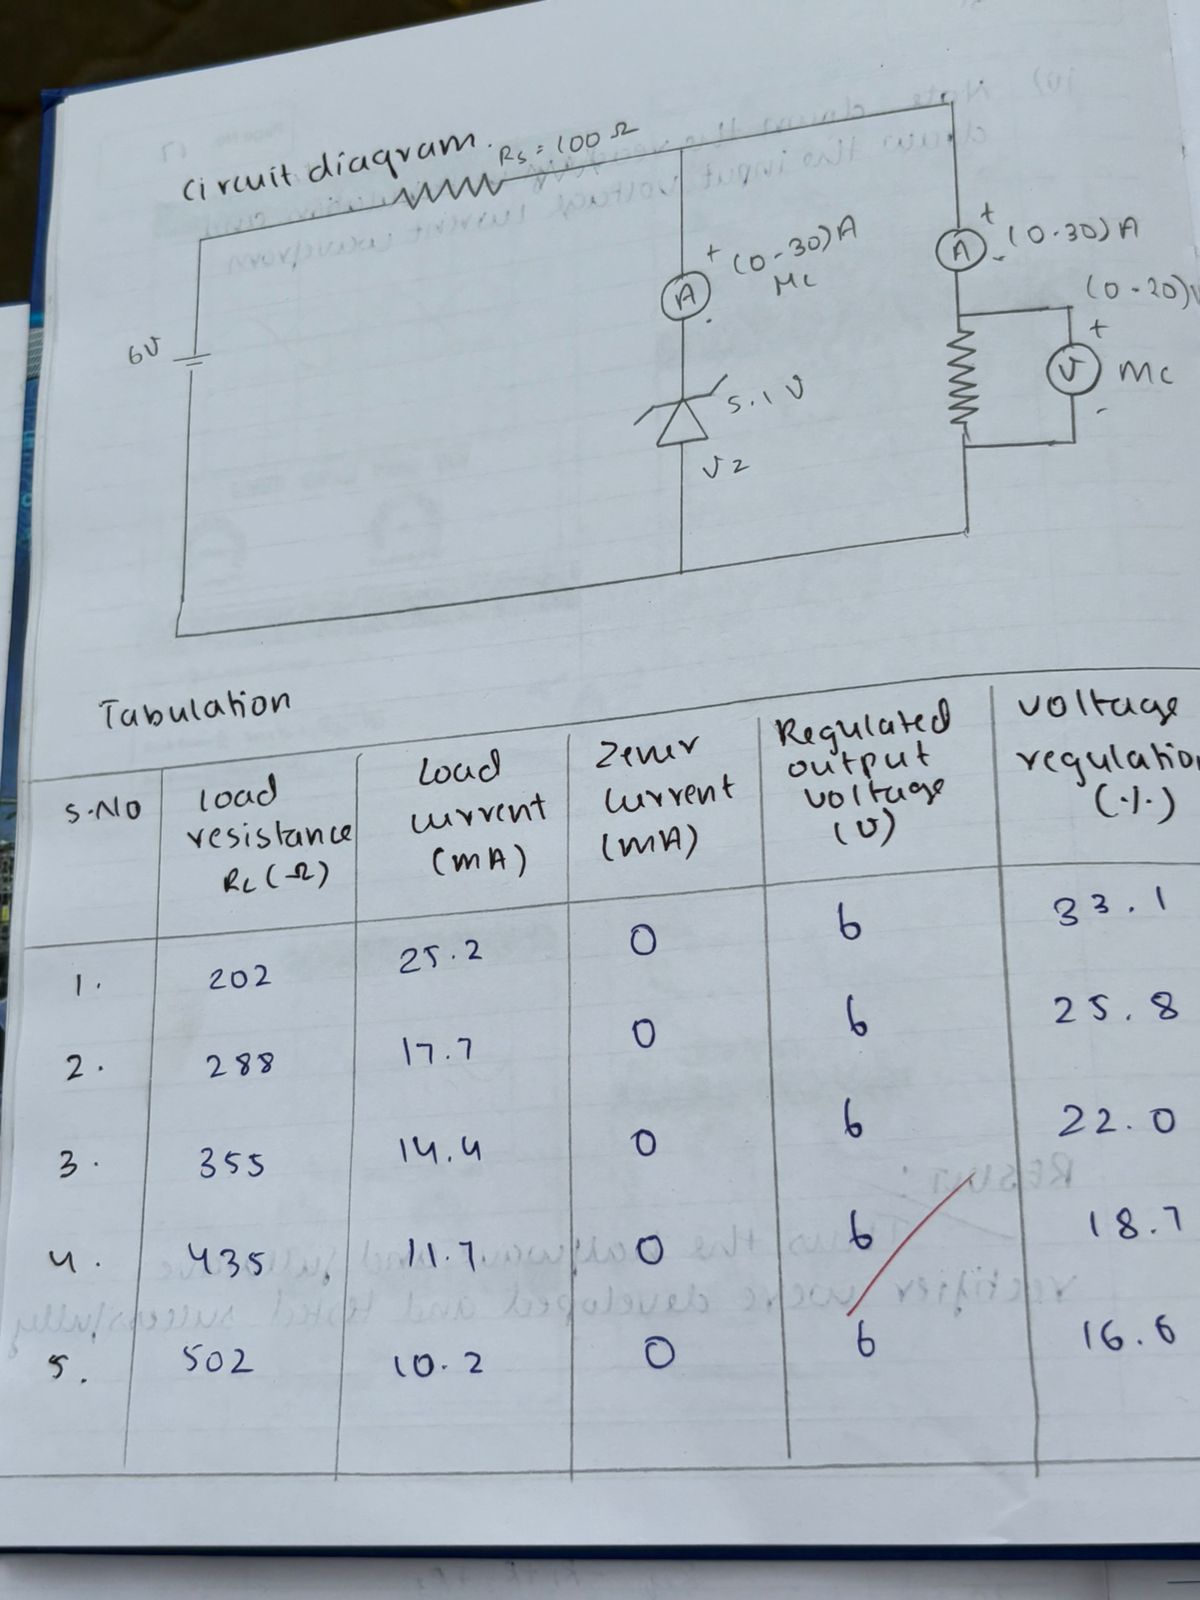 Circuit diagram.
Rs = 100 Ω
+ (0-30)A
A
MC
+ (0-30)A
A
-
(0-20)V
+
V
MC
-
6V
5.1 V
VZ
Tabulation
S.No
Load
resistance
RL (Ω)
Load
current
(mA)
Zener
current
(mA)
Regulated
output
voltage
(V)
voltage
regulation
(%)
1. 202 25.2 0 6 33.1
2. 288 17.7 0 6 25.8
3. 355 14.4 0 6 22.0
4. 435 11.7 0 6 18.7
5. 502 10.2 0 6 16.6